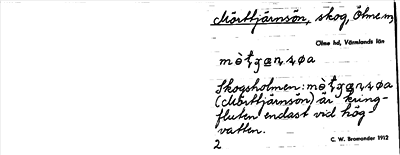 Mörttjärnsön, skog, Ölme sn
Ölme hd, Värmlands län
Skogsholmen:
(Mörttjärnsön) är kring-
fluten endast vid hög-
vatten.
2
C. W. Bromander 1912